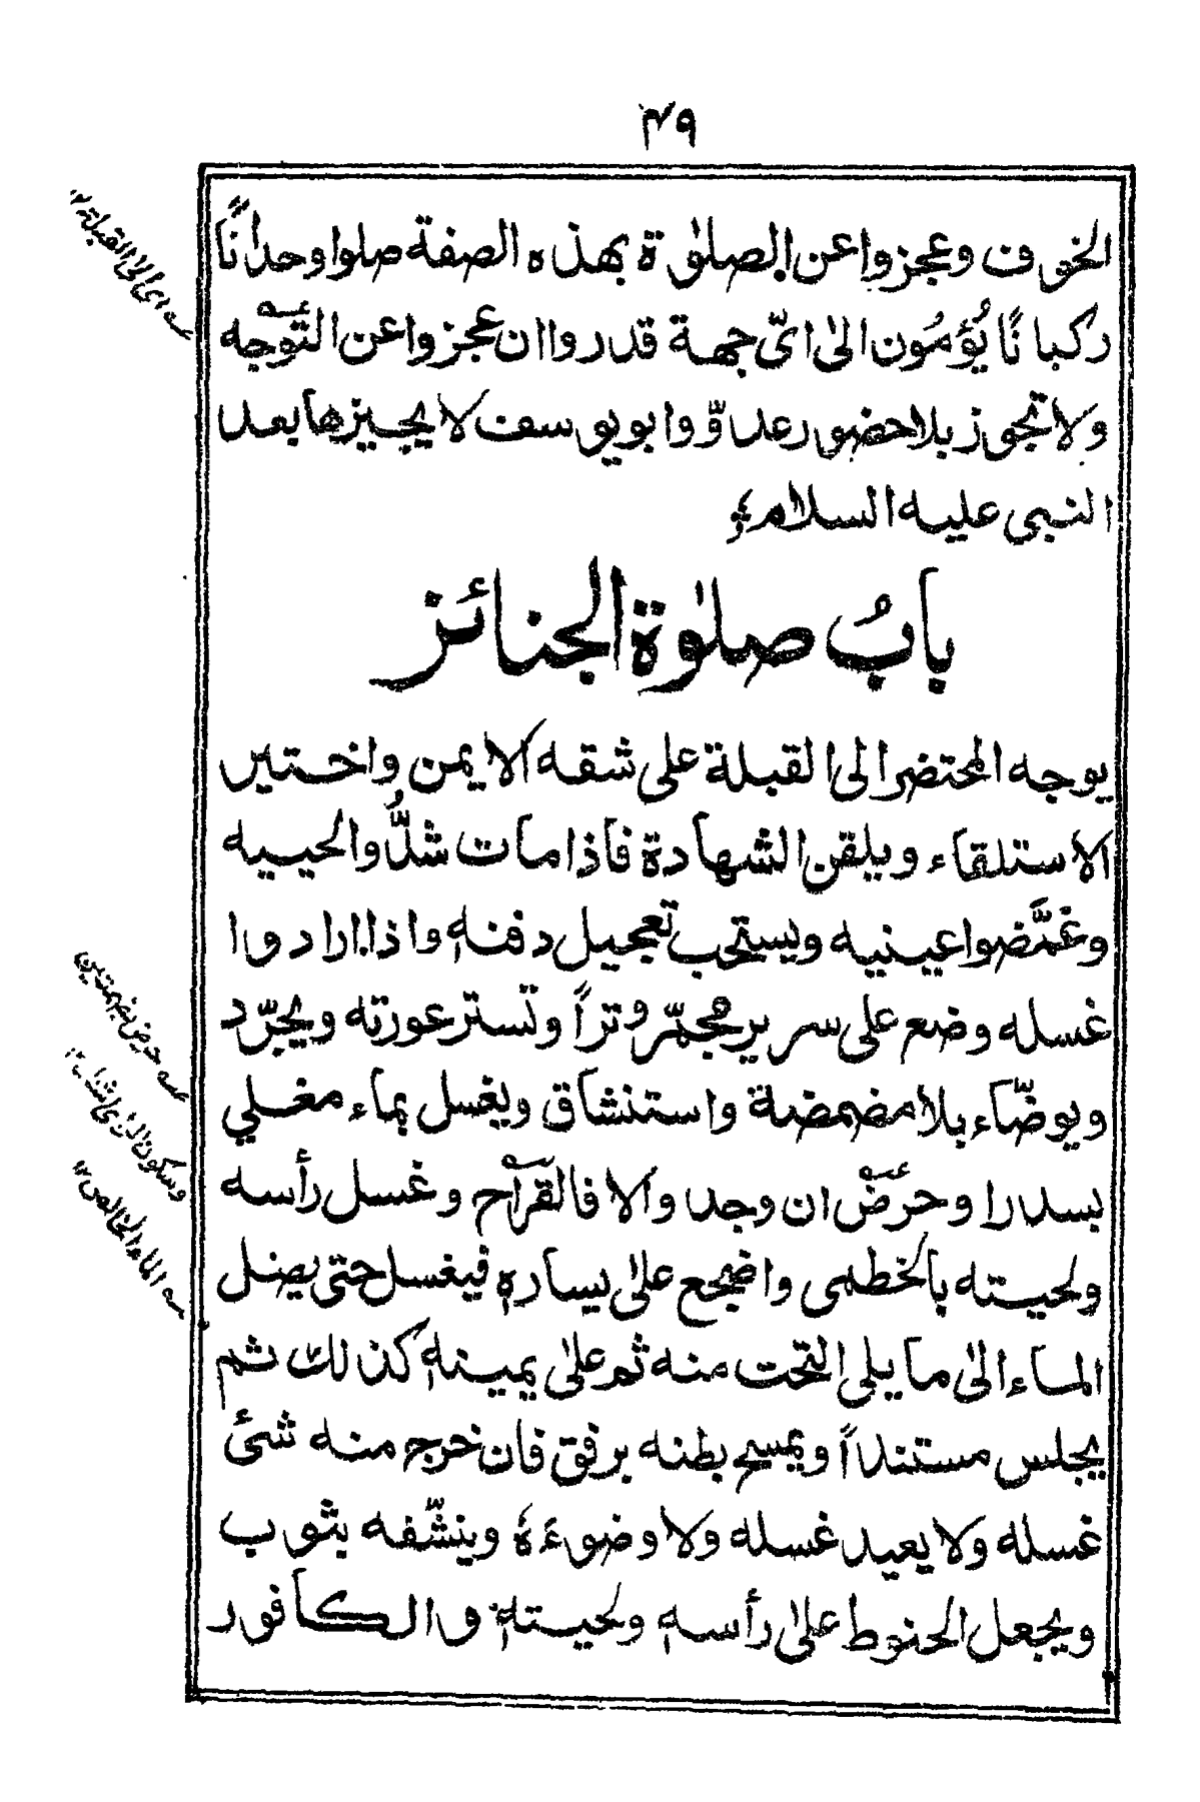 ۴۹
الخوف وعجزوا عن الصلوٰة بهذه الصفة صلوا وحدانًا
ركبانًا يُؤمُون الىٰ ایّ جهة قدروا ان عجزوا عن التوجه
ولا تجوز بلا حضور عدوّ وابو يوسف لا يجيزها بعد
النبی عليه السلام
بابُ صلوٰة الجنائز
يوجه المحتضر الى القبلة على شقه الايمن واختير
الاستلقاء ويلقن الشهادة فاذا مات شدُّوا لحييه
وغمَّضوا عينيه ويستحب تعجيل دفنه واذا ارادوا
غسله وضع على سرير مجمّر وترًا وتستر عورته ويجرّد
ويوضّاء بلا مضمضة واستنشاق ويغسل بماء مغلي
بسدر او حرض ان وجد والا فالقراح وغسل رأسه
ولحيته بالخطمی واضجع علىٰ يساره فيغسل حتى يصل
الماء الىٰ ما يلی التحت منه ثم علىٰ يمينه كذلك ثم
يجلس مستندًا ويمسح بطنه برفق فان خرج منه شئ
غسله ولا يعيد غسله ولا وضوءهٗ وينشّفه بثوب
ويجعل الحنوط علىٰ رأسه ولحيته والكافور
ای الی القبلة ۱۲
حرض بضمتين
وسكون الراء ای اشنان ۱۲
الماء الخالص ۱۲